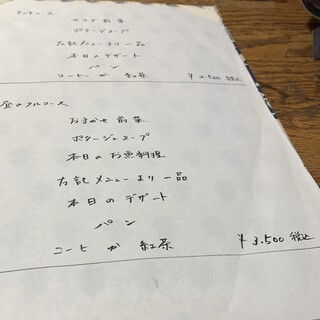 ランチコース
サラダ前菜
ポタージュスープ
右記メニューより一品
本日のデザート
パン
コーヒーか紅茶 ¥2,500 税込
昼のフルコース
おまかせ前菜
ポタージュスープ
本日のお魚料理
右記メニューより一品
本日のデザート
パン
コーヒーか紅茶 ¥3,500 税込